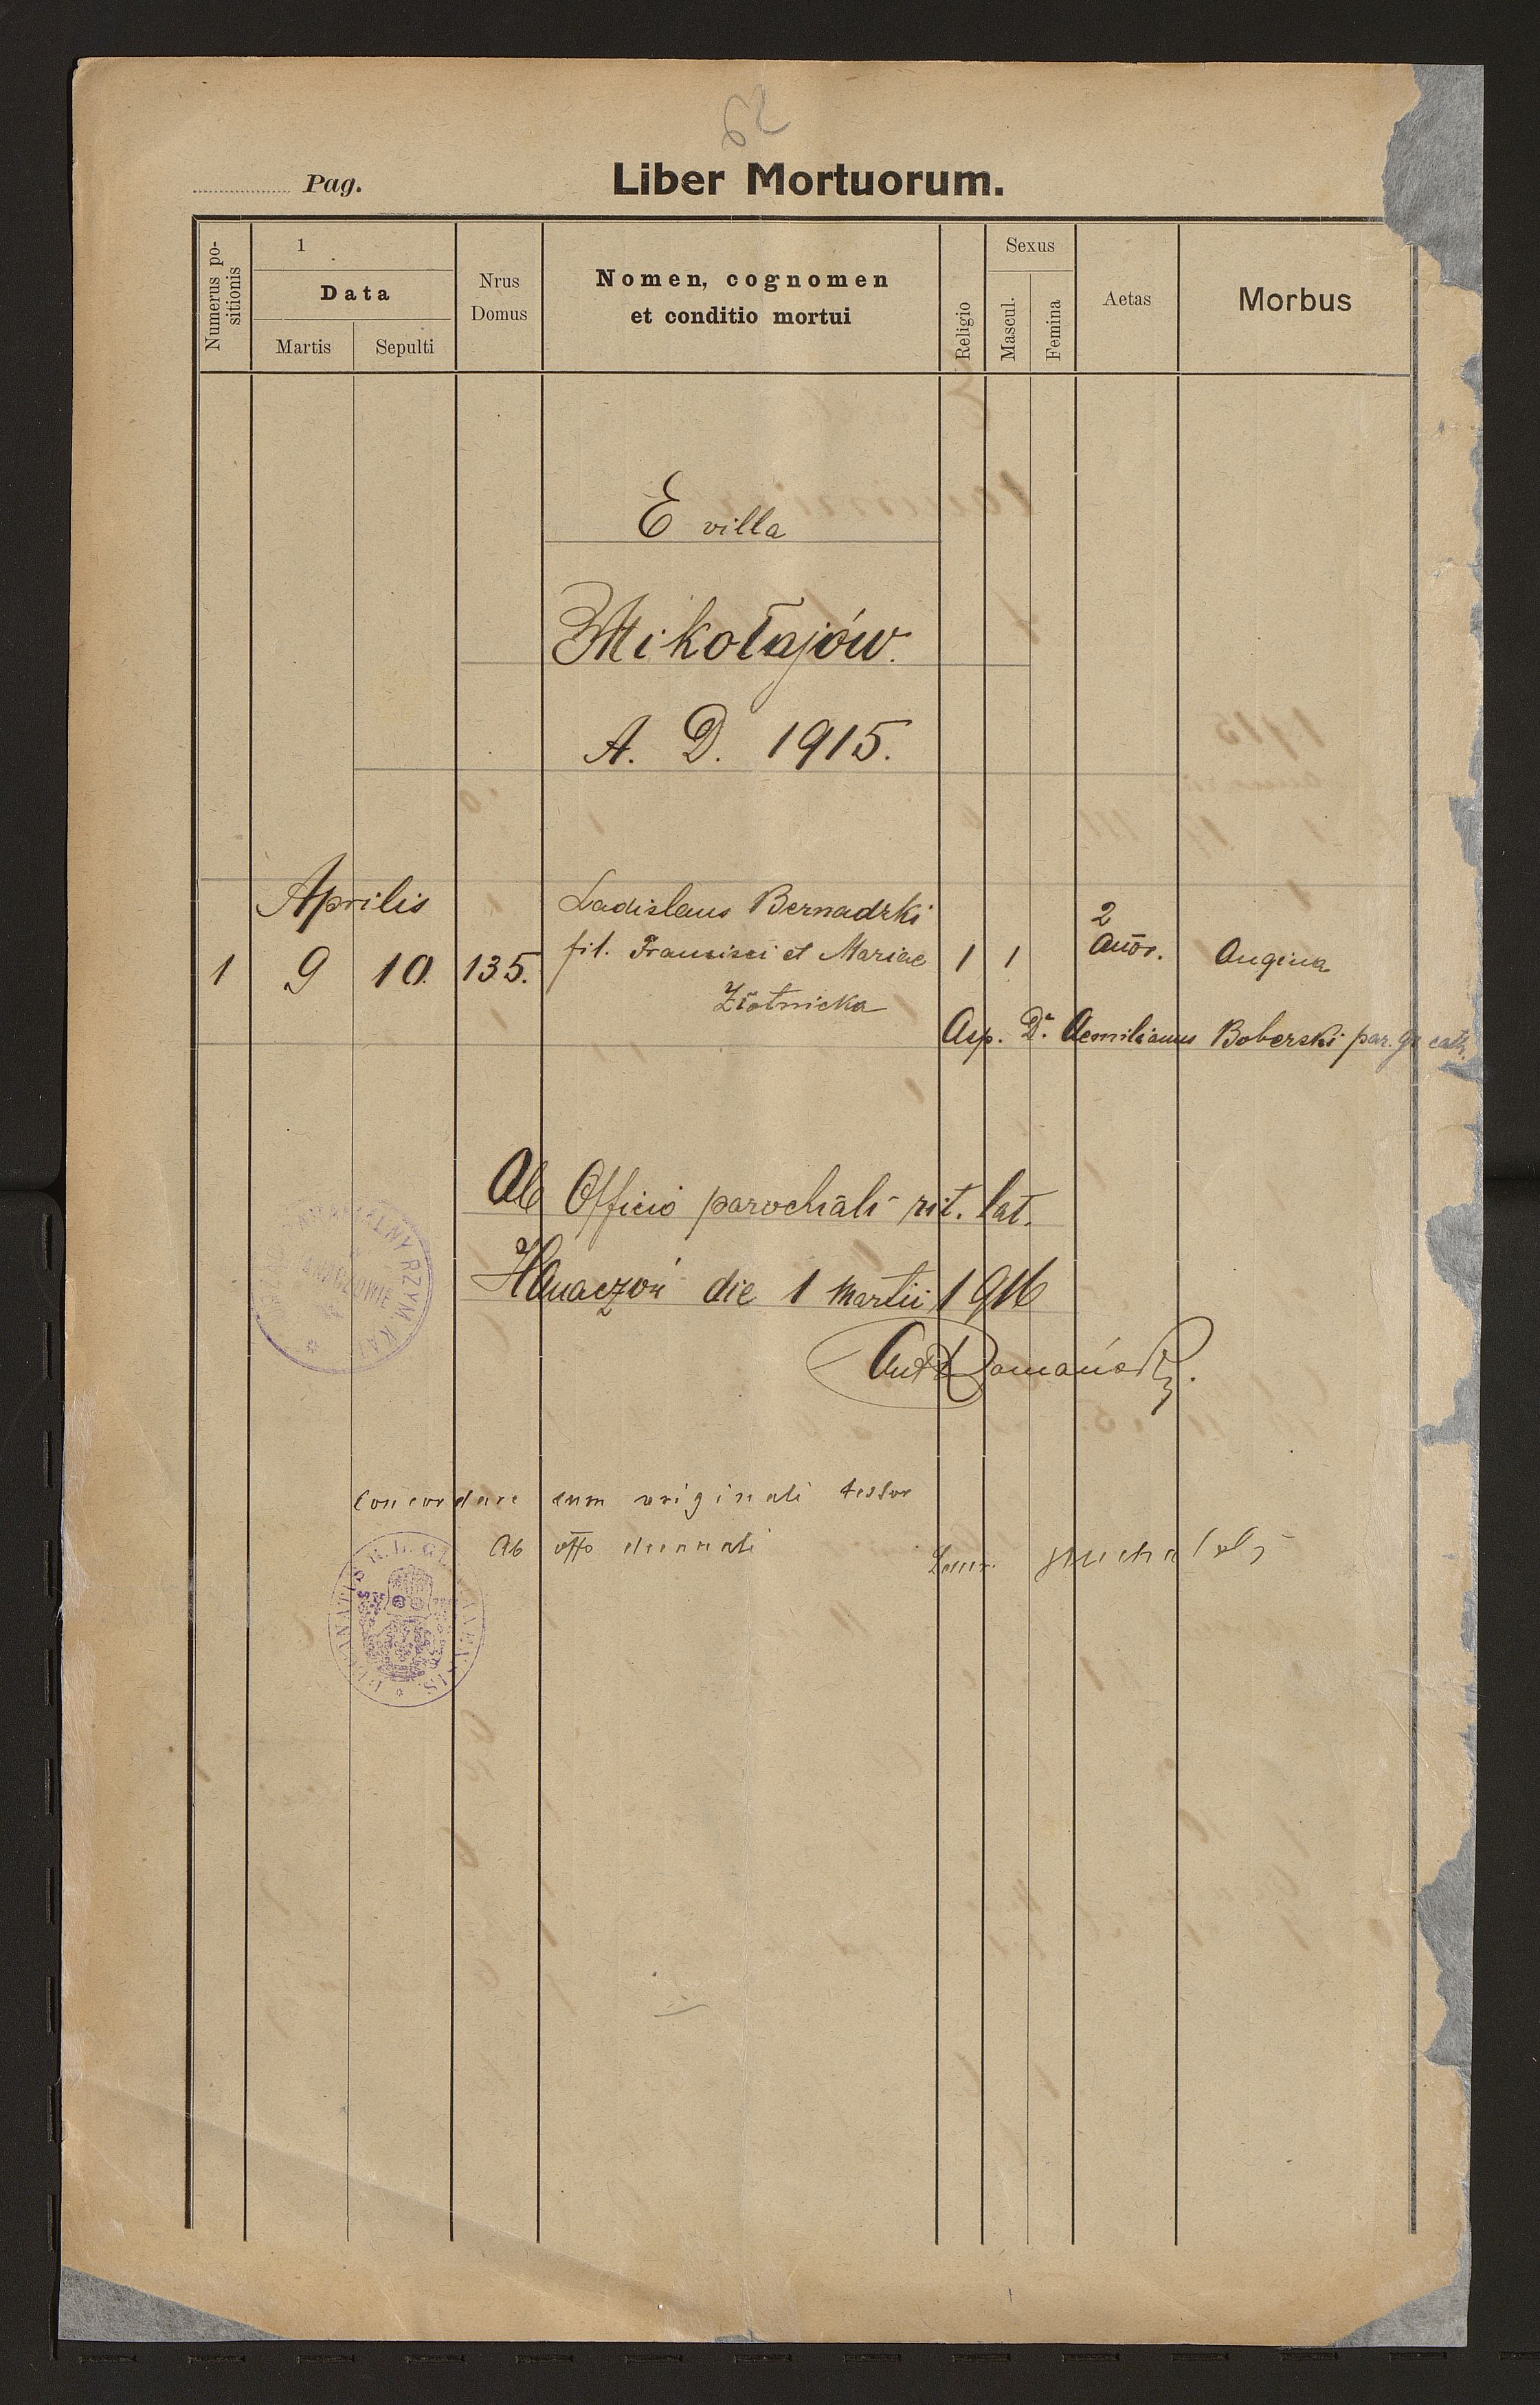 62
Pag. Liber Mortuorum.
Numerus po-
sitionis
1
Data
Martis Sepulti
Nrus
Domus
Nomen, cognomen
et conditio mortui
Religio
Sexus
Mascul.
Femina
Aetas
Morbus
E villa
Mikołajów.
A. D. 1915.
Aprilis
1 9 10. 135.
Ladislaus Bernadzki
fil. Francisci et Mariae
Złotnicka
1 1
2
Anor.
Angina
Asp. Dr. Aemilianus Boberski par. gr cath.
Ab Officio parochiali rit. lat.
Hanaczów die 1 Martii 1916
Concordare cum originali testor
Ab offo decanali